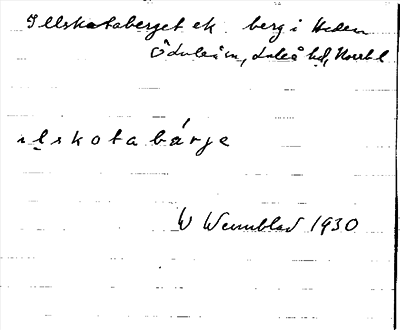 Illskataberget ek. berg i Heden
Öduleå sn, Luleå hd, Norrbl
ilskotabárje
W Wennblad 1930